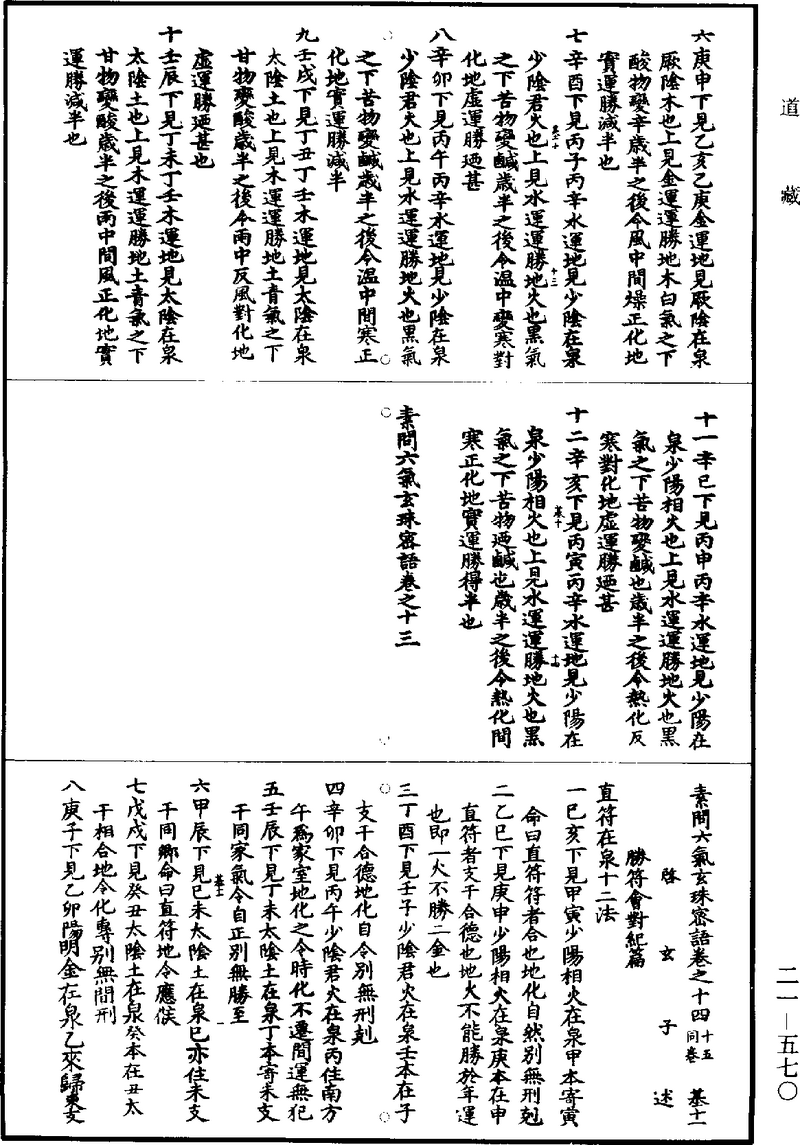 道藏
六庚申下見乙亥乙庚金運地見厥陰在泉
厥陰木也上見金運運勝地木白氣之下
酸物變辛歲半之後令風中間燥正化地
實運勝減半也
七辛酉下見丙子丙辛水運地見少陰在泉
少陰君火也上見水運運勝地火也黑氣
之下苦物變鹹歲半之後令溫中變寒對
化地虛運勝迺甚
八辛卯下見丙午丙辛水運地見少陰在泉
少陰君火也上見水運運勝地火也黑氣
之下苦物變鹹歲半之後令溫中間寒正
化地實運勝減半
九壬戌下見丁丑丁壬木運地見太陰在泉
太陰土也上見木運運勝地土青氣之下
甘物變酸歲半之後令雨中反風對化地
虛運勝迺甚也
十壬辰下見丁未丁壬木運地見太陰在泉
太陰土也上見木運運勝地土青氣之下
甘物變酸歲半之後雨中間風正化地實
運勝減半也
十一辛巳下見丙申丙辛水運地見少陽在
泉少陽相火也上見水運運勝地火也黑
氣之下苦物變鹹也歲半之後令熱化反
寒對化地虛運勝迺甚
十二辛亥下見丙寅丙辛水運地見少陽在
泉少陽相火也上見水運運勝地火也黑
氣之下苦物迺鹹也歲半之後令熱化間
寒正化地實運勝得半也
素問六氣玄珠密語卷之十三
素問六氣玄珠密語卷之十四 十五同卷 基十一
啓玄子述
勝符會對紀篇
直符在泉十二法
一己亥下見甲寅少陽相火在泉甲本寄寅
命曰直符符者合也地化自然別無刑剋
二乙巳下見庚申少陽相火在泉庚本在申
直符者支干合德也地火不能勝於年運
也即一火不勝二金也
三丁酉下見壬子少陰君火在泉壬本在子
支干合德地化自令別無刑剋
四辛卯下見丙午少陰君火在泉丙住南方
午爲家室地化之令時化不遷間運無犯
五壬辰下見丁未太陰土在泉丁本寄未支
干同家氣令自正別無勝至
六甲辰下見己未太陰土在泉己亦住未支
干同鄉命曰直符地令應候
七戊戌下見癸丑太陰土在泉癸本在丑太
干相合地令化專別無間刑
八庚子下見乙卯陽明金在泉乙來歸東支
二一—五七〇